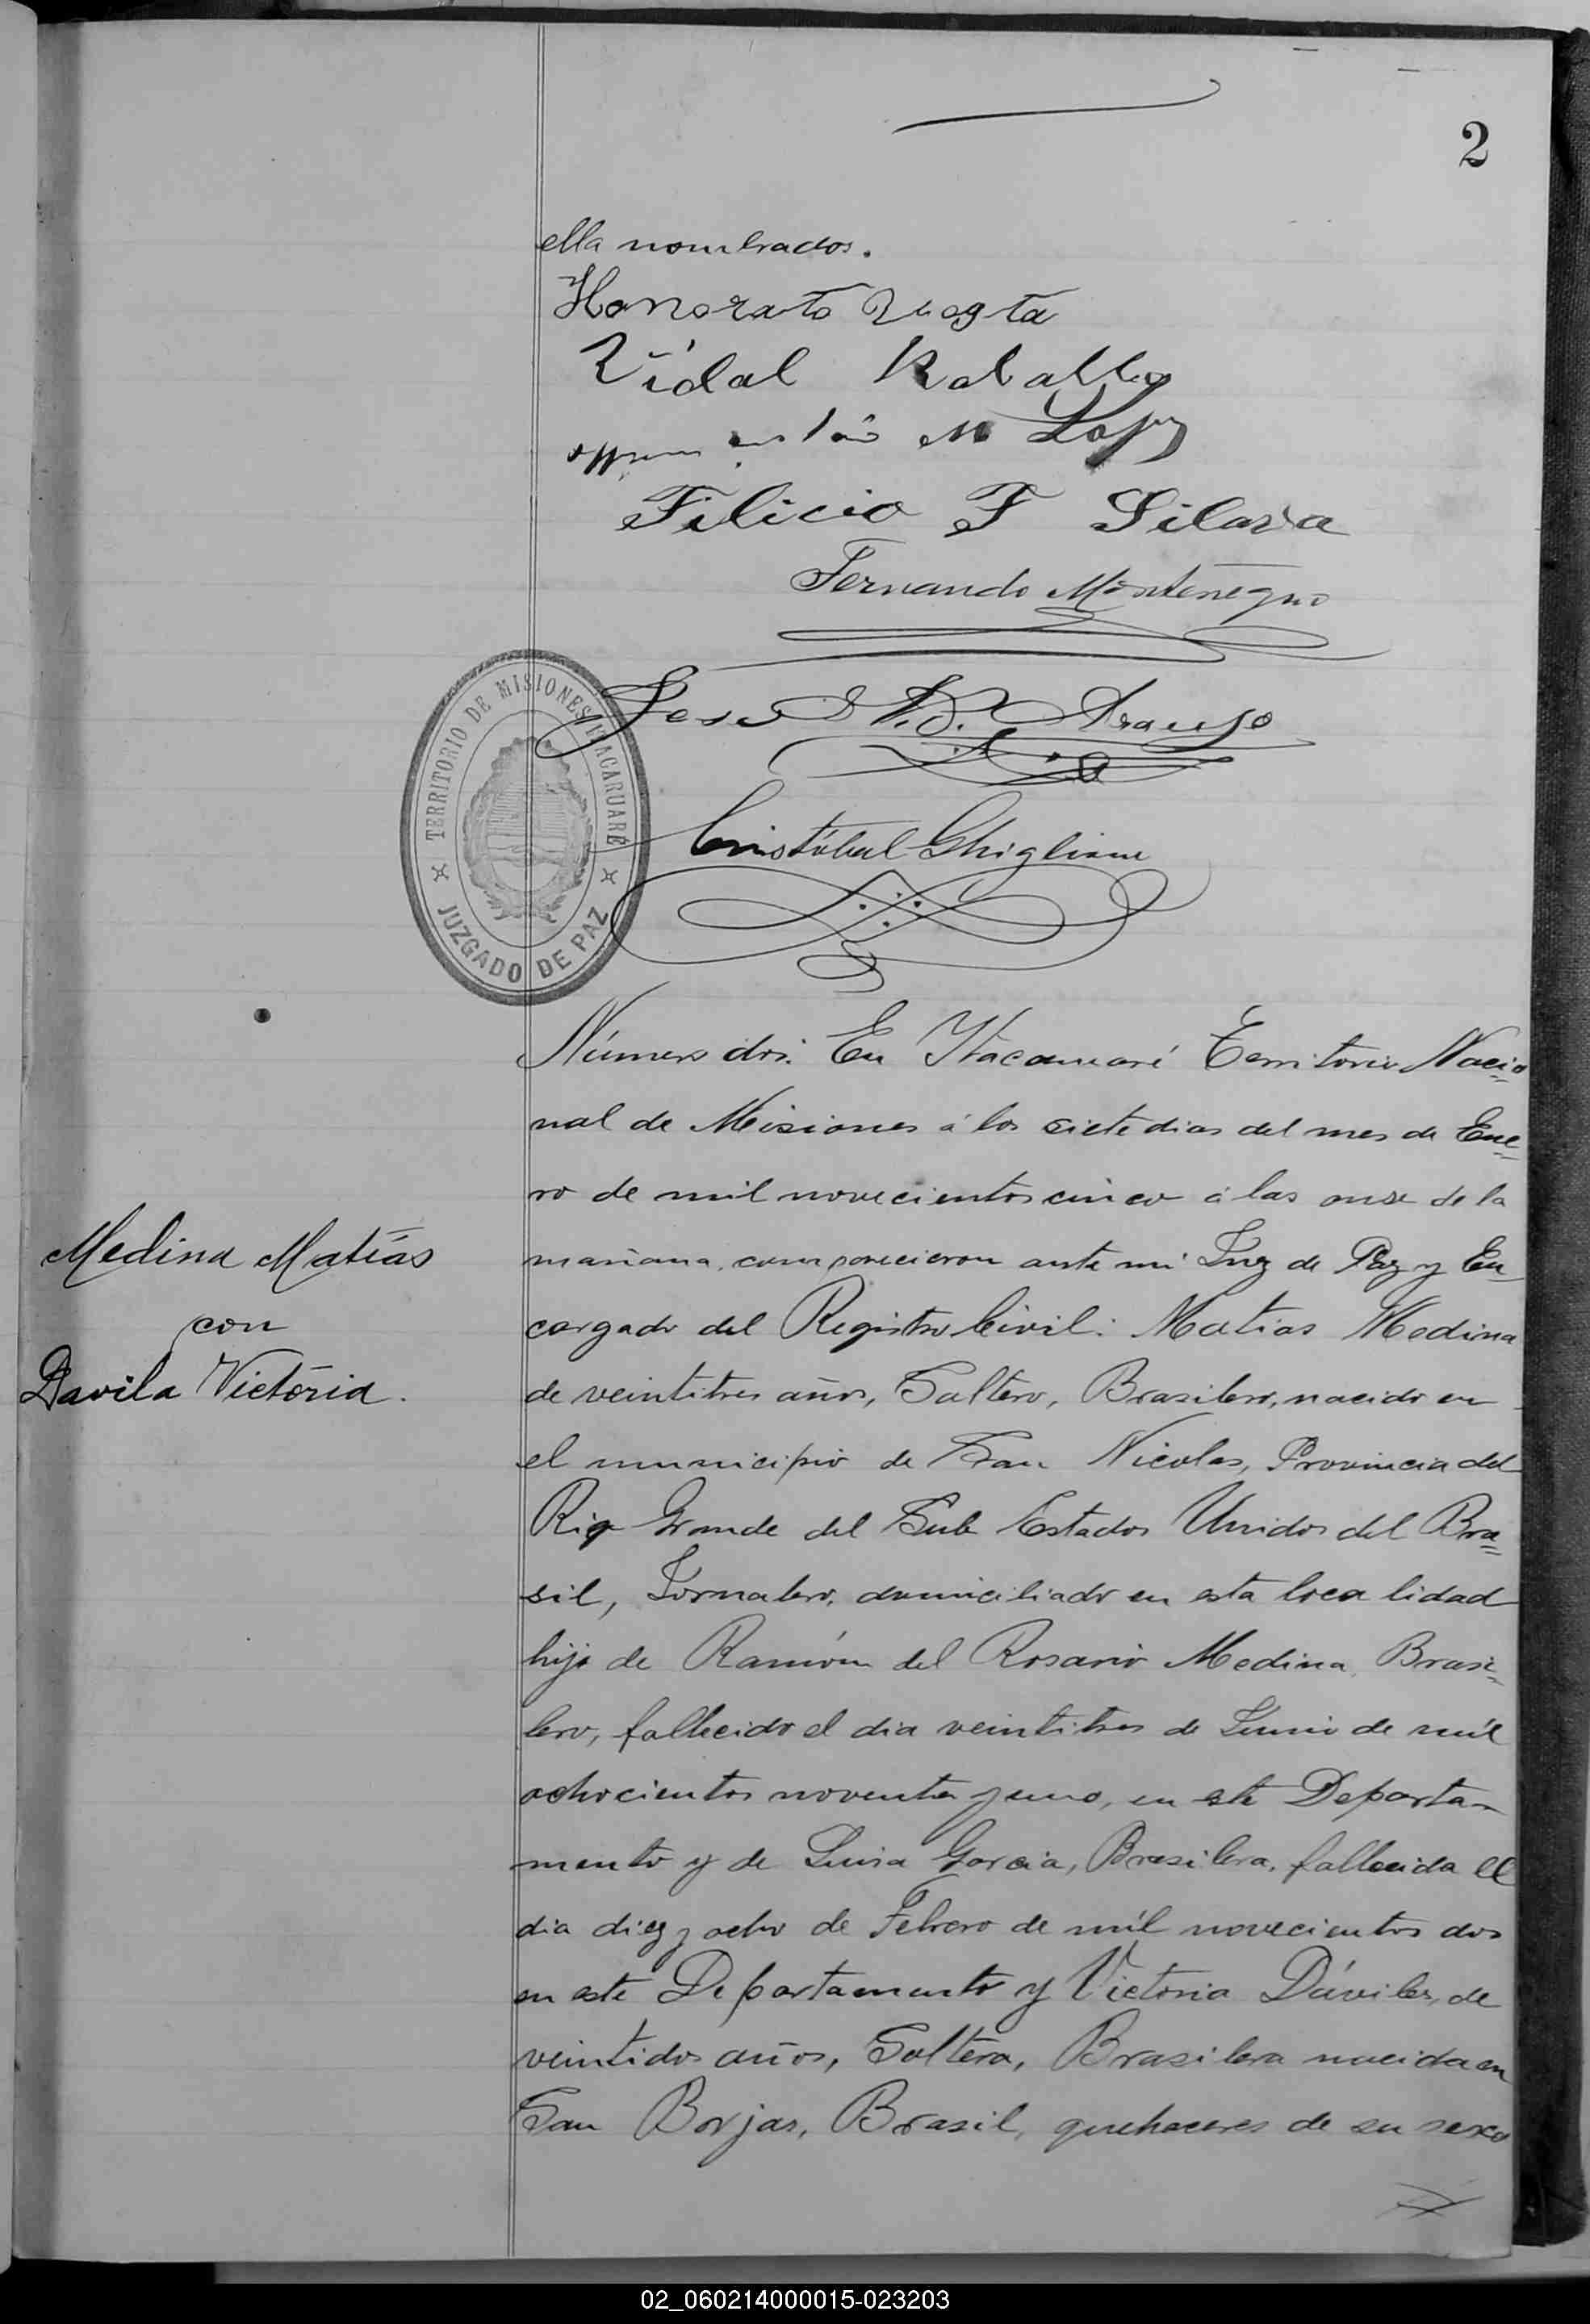 2
ella nombrados.
Honorato
Vidal
Lopez
Filicio F Silava
Fernando Montenegro
TERRITORIO DE MISIONES ITACARUARÉ
JUZGADO DE PAZ
Jesus Araujo
Cristóbal Ghiglione
Número dos. En Ytacaruaré Territorio Nacio
nal de Misiones á los siete dias del mes de Ene=
ro de mil novecientos cinco á las onse de la
mañana, comparecieron ante mi Juez de Paz y En
cargado del Registro Civil: Matias Medina
de veintitres años, Soltero, Brasilero, nacido en
el municipio de San Nicolas, Provincia del
Rio Grande del Sub Estados Unidos del Bra=
sil, Jornalero, domiciliado en esta localidad
hijo de Ramón del Rosario Medina, Brasi=
lero, fallecido el dia veintitres de Junio de mil
ochocientos noventa y uno, en este Departa-
mento y de Luisa Garcia, Brasilera, fallecida el
dia diez y ocho de Febrero de mil novecientos dos
en este Departamento y Victoria Dávila, de
veintidos años, Soltera, Brasilera nacida en
San Borjas, Brasil, quehaceres de su sexo
Medina Matías
con
Davila Victória.
02_060214000015-023203